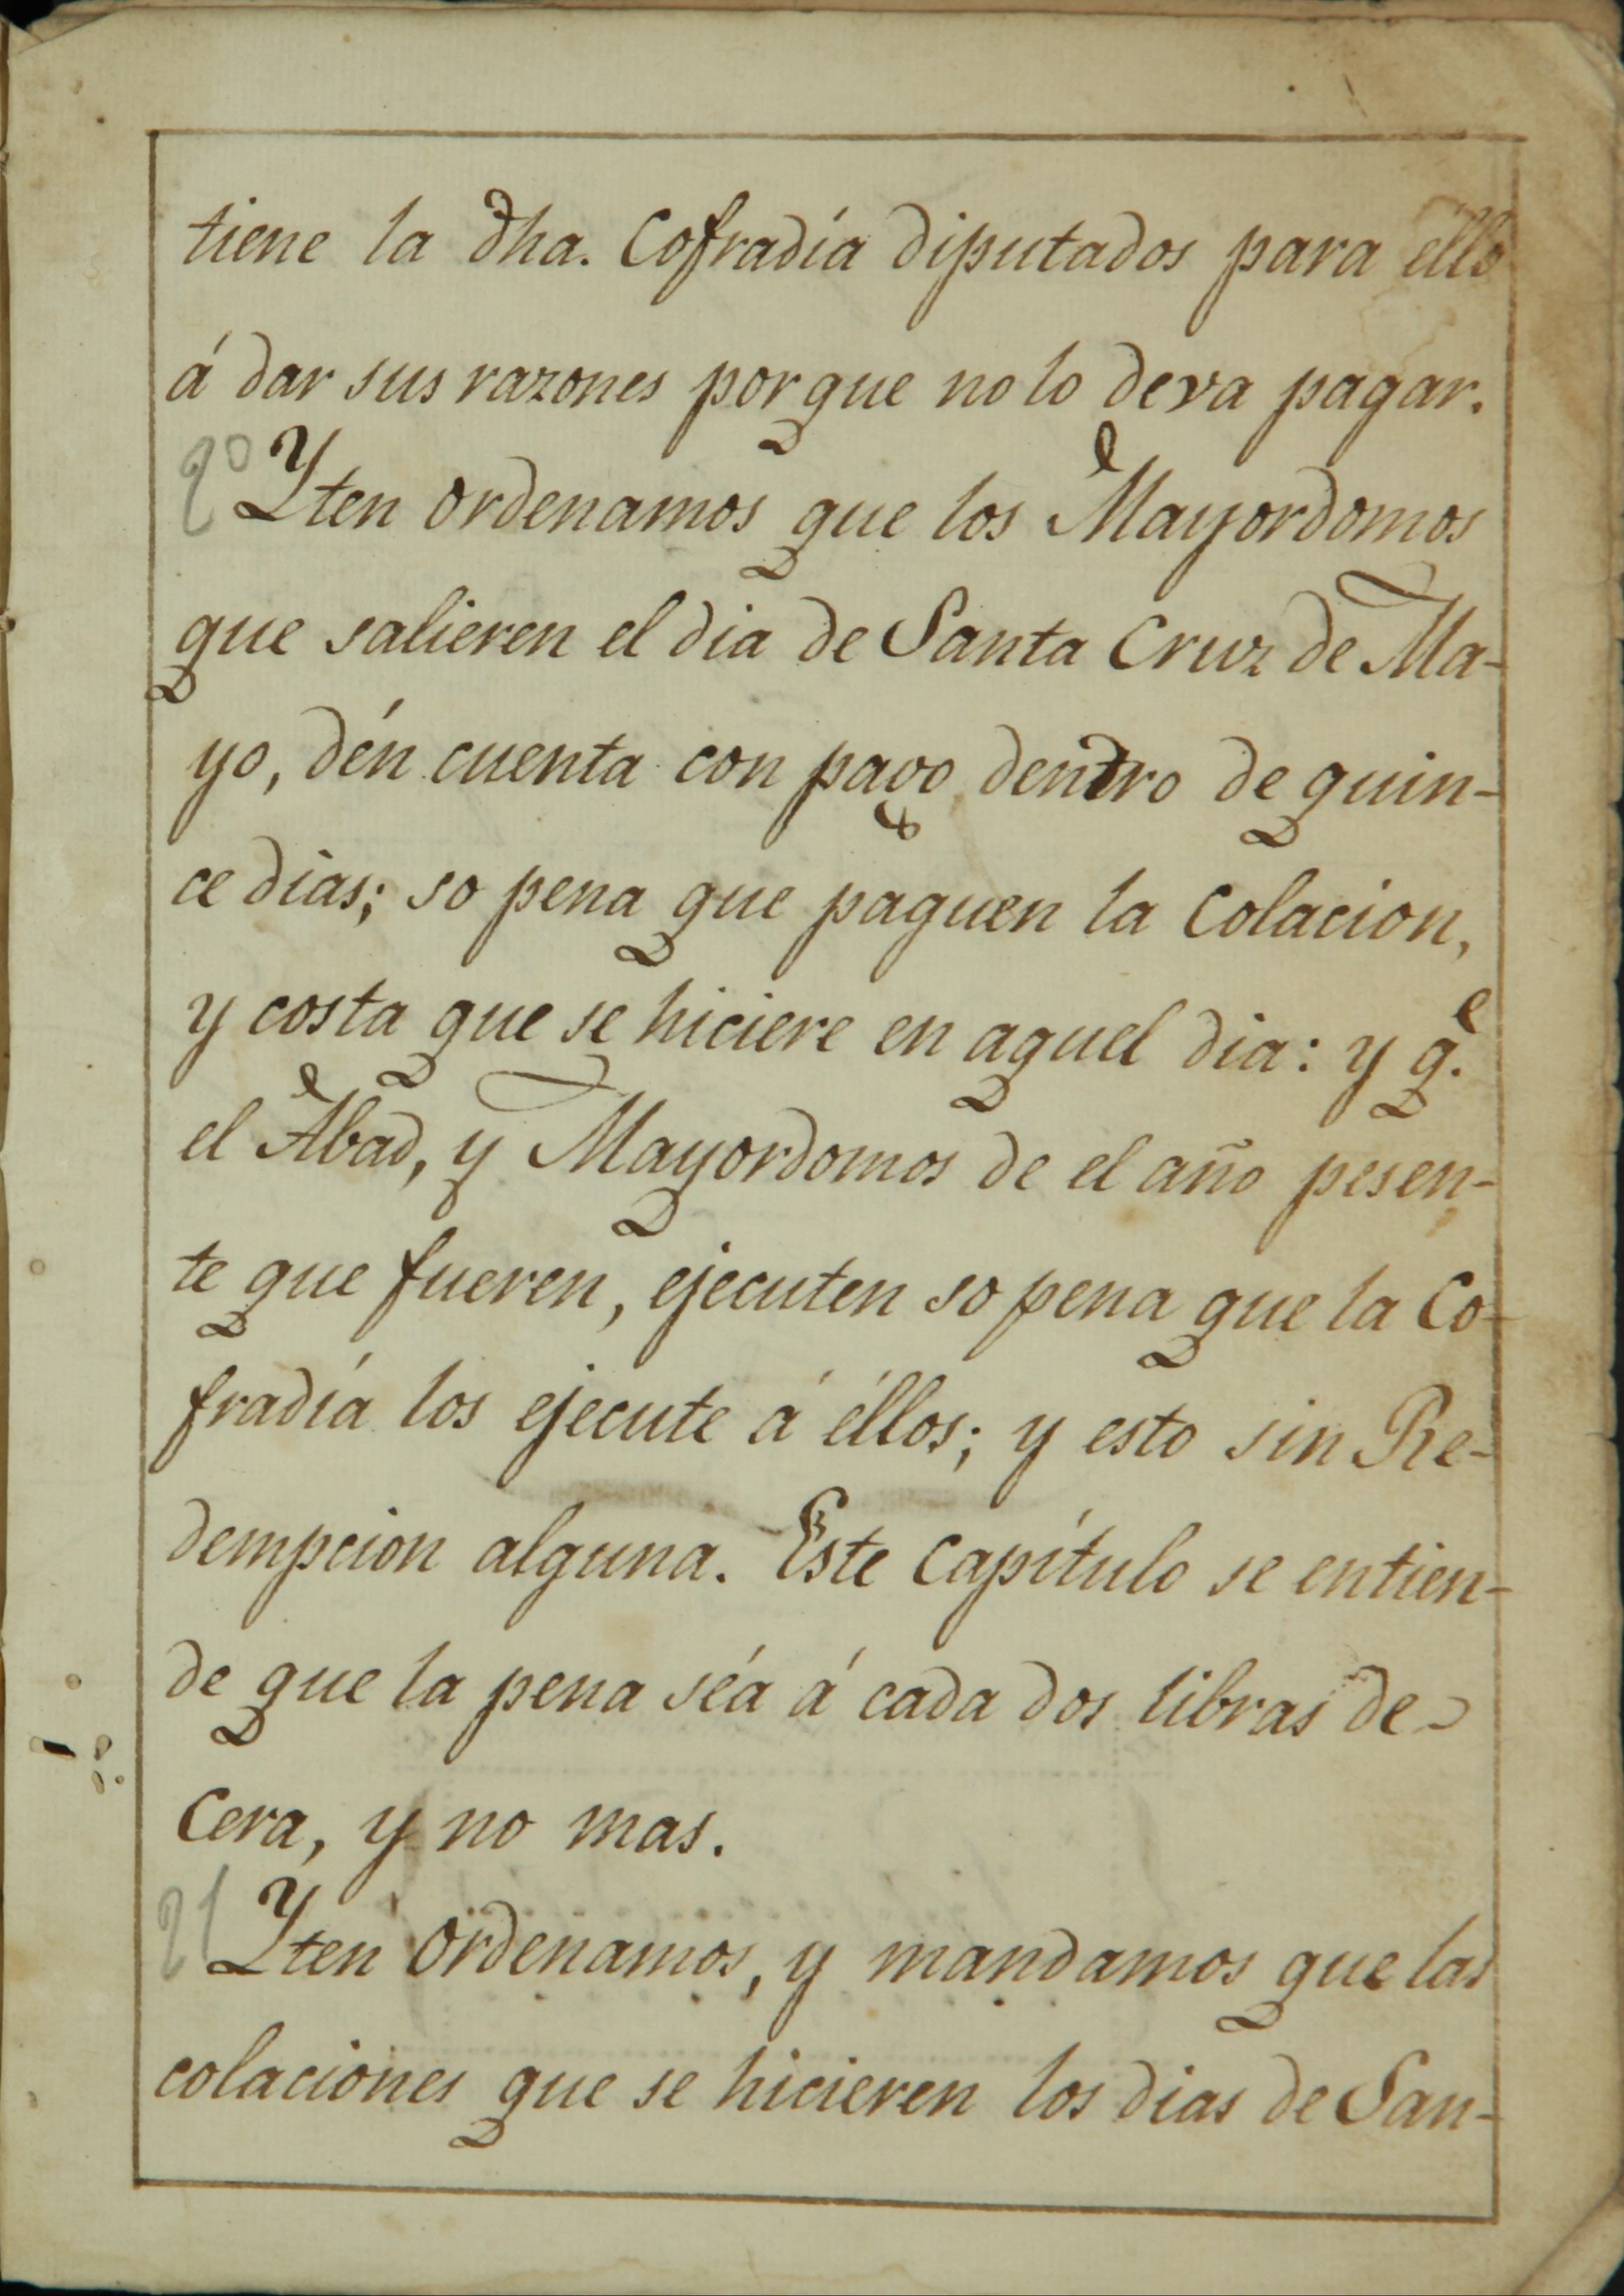 tiene la dha. Cofradía diputados para éllo
á dar sus razones porque no lo deva pagar.
20 Yten ordenamos que los Mayordomos
que salieren el dia de Santa Cruz de Ma-
yo, dén cuenta con pago dentro de quin-
ce dias; so pena que paguen la Colacion,
y costa que se hiciere en aquel dia: y q.e
el Abad, y Mayordomos de el año pesen-
te que fueren, ejecuten so pena que la Co-
fradía los ejecute á éllos; y esto sin Re-
dempcion alguna. Este Capítulo se entien-
de que la pena séa á cada dos libras de
Cera, y no mas.
21 Yten Ordenamos, y mandamos que las
colaciones que se hicieren los dias de San-